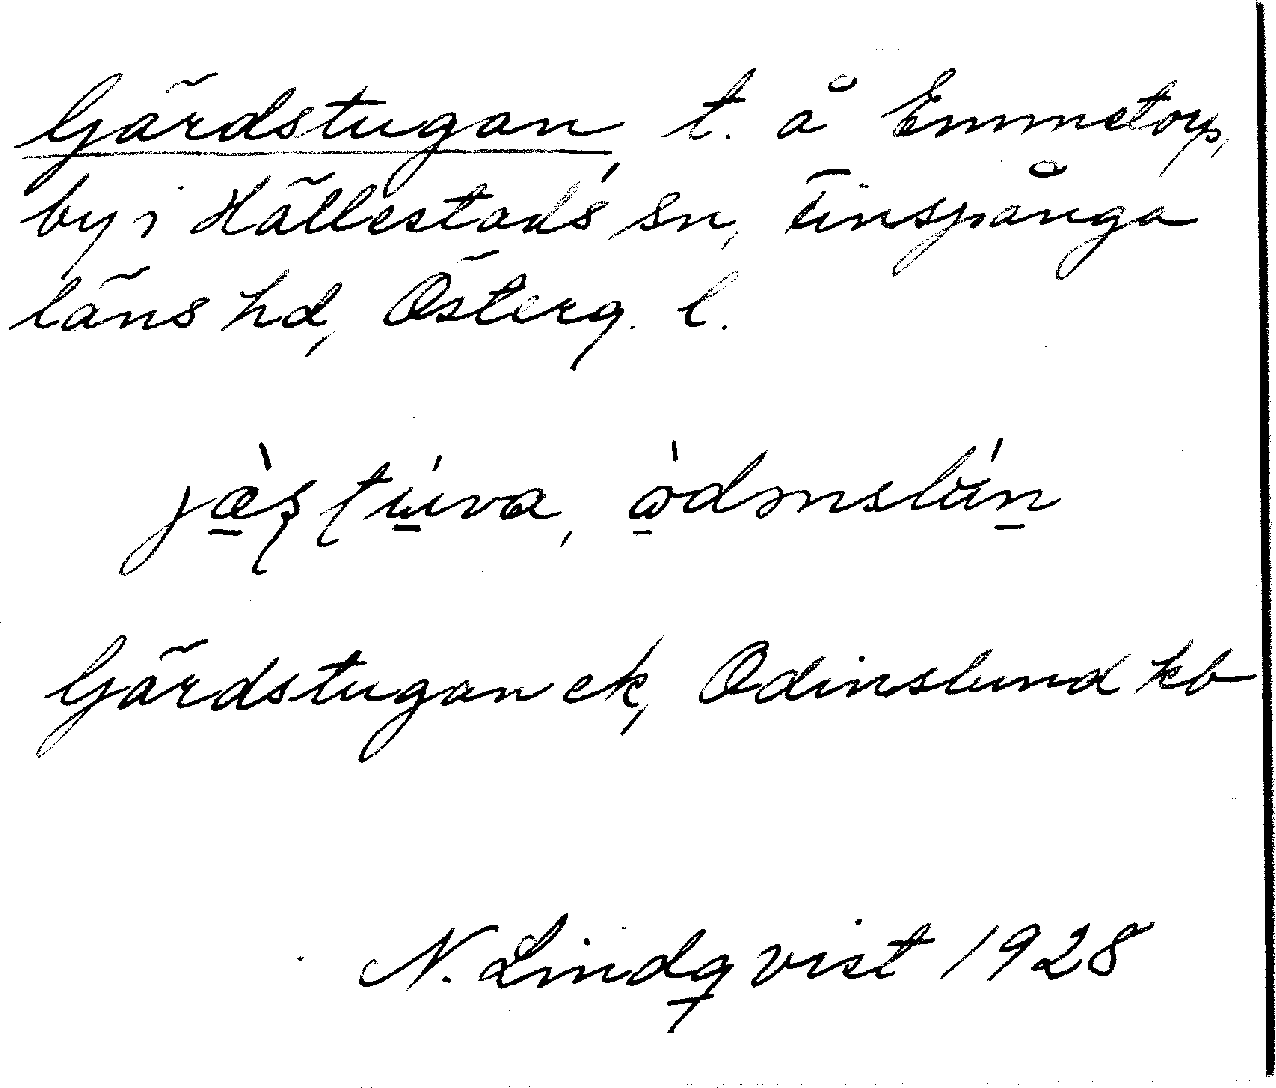 Gärdstugan, t. å Emmetorp,
by i Hällestads sn, Finspånga
läns hd, Österg. l.
jæ̀ʂtu̇va, ɷ̀dɩnslún
Gärdstugan ek, Odinslund kb
N. Lindqvist 1928